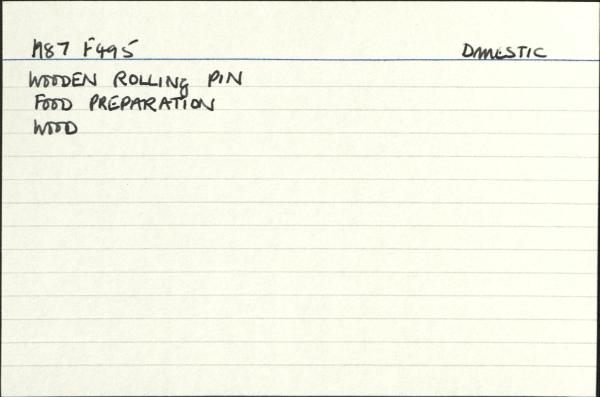 M87 F495 DOMESTIC
WOODEN ROLLING PIN
FOOD PREPARATION
WOOD